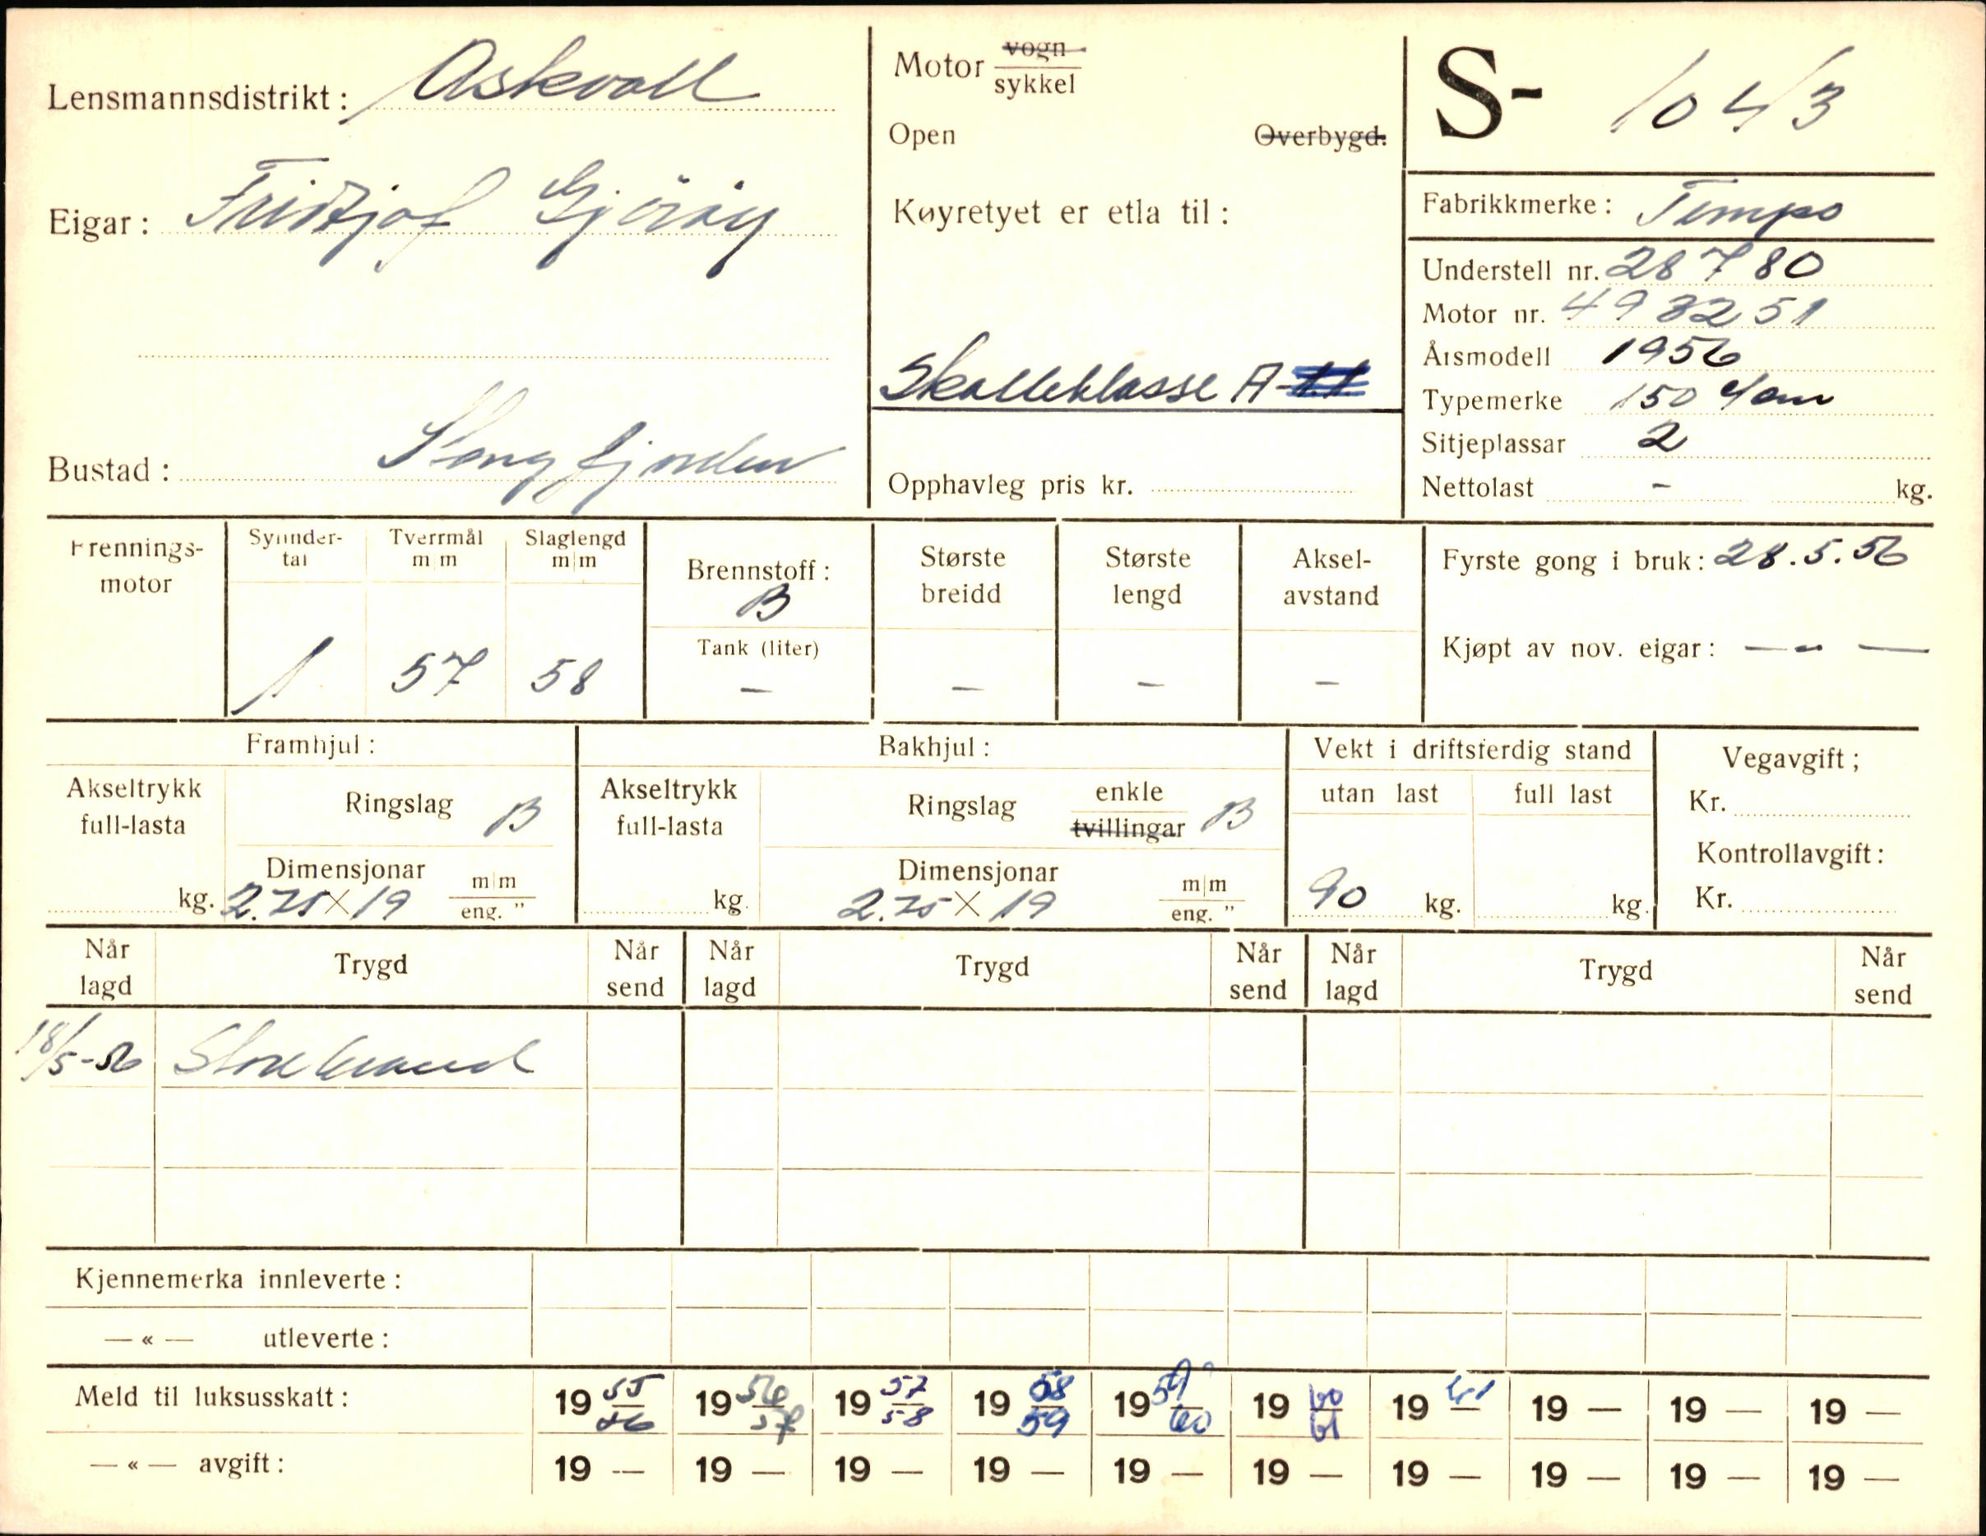 Lensmannsdistrikt: Askvoll
Motor vogn
sykkel
S- 1043
Open Overbygd.
Eigar: Fridtjof
Køyretyet er etla til:
Fabrikkmerke: Tempo
Understell nr. 28780
Motor nr. 4932251
Årsmodell 1956
Skatteklasse A-11
Typemerke 150 4/cm
Sitjeplassar 2
Bustad: Stongfjorden
Opphavleg pris kr.
Nettolast - kg.
Frennings-motor
Sylinder-tal 1
Tverrmål m|m 57
Slaglengd m|m 58
Brennstoff: B
Tank (liter) -
Største breidd -
Største lengd -
Aksel-avstand -
Fyrste gong i bruk: 28.5.56
Kjøpt av nov. eigar: — - —
Framhjul:
Akseltrykk full-lasta kg.
Ringslag B
Dimensjonar 2.75 X 19 m|m eng. "
Bakhjul:
Akseltrykk full-lasta kg.
Ringslag enkle tvillingar B
Dimensjonar 2.75 X 19 m|m eng. "
Vekt i driftsferdig stand
utan last 90 kg.
full last kg.
Vegavgift;
Kr.
Kontrollavgift:
Kr.
Når lagd Trygd Når send Når lagd Trygd Når send Når lagd Trygd Når send
18/5-56 Storebrand
Kjennemerka innleverte:
— « — utleverte:
Meld til luksusskatt: 19 55/56 19 56/57 19 57/58 19 58/59 19 59/60 19 60/61 19 61 — 19 — 19 — 19 —
— « — avgift: 19 — 19 — 19 — 19 — 19 — 19 — 19 — 19 — 19 — 19 —